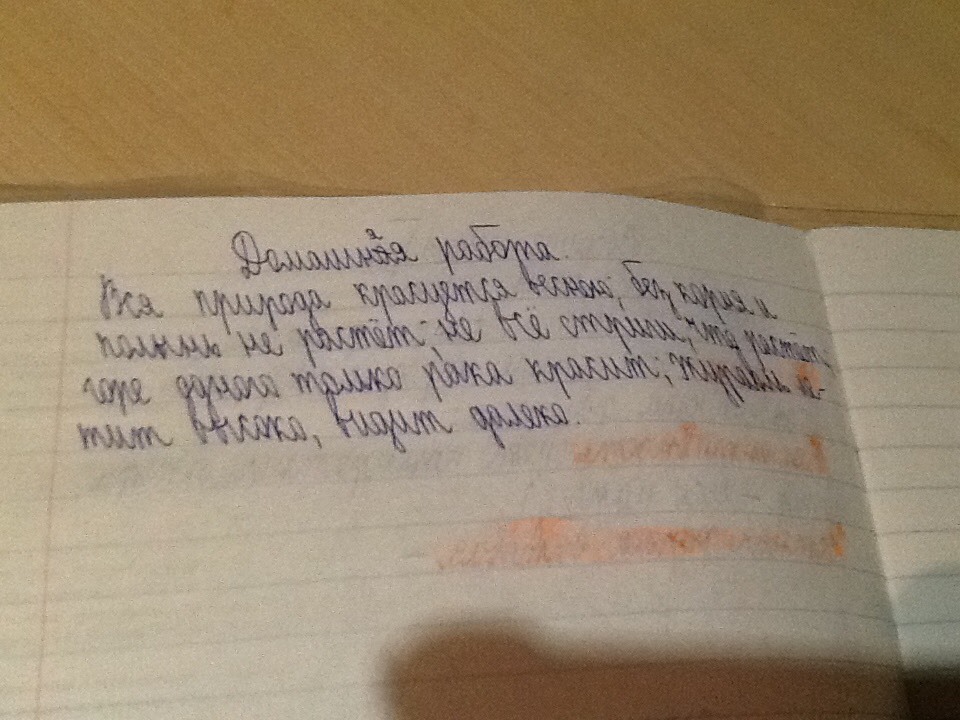 Домашняя работа.
Вся природа красуется весною; без корня и
полынь не растёт; не всё стриги, что растёт;
горе одного только рака красит; журавль ле-
тит высоко, видит далеко.